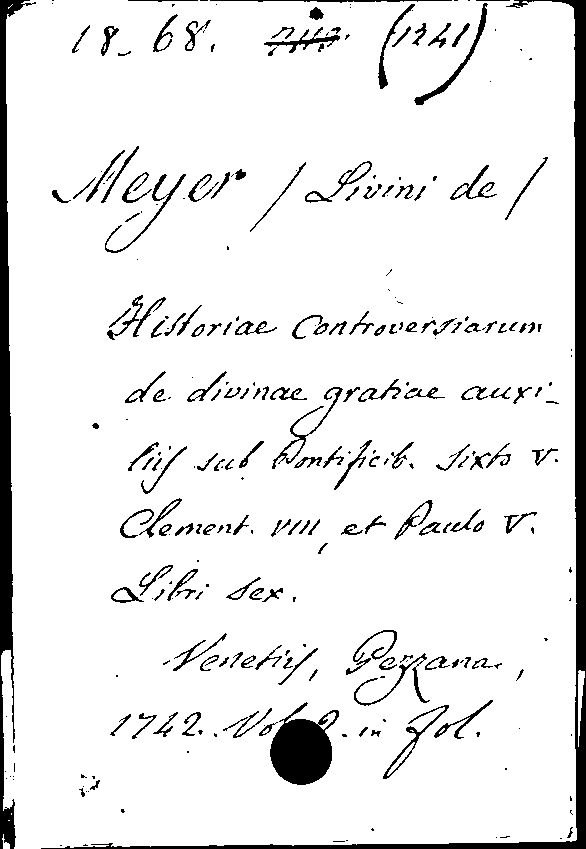 18_ 68. (1241)
Meyer / Livini de /
Historiae Controversiarum
de divinae gratiae auxi_
liis sub Pontificib. Sixto V.
Clement. VIII, et Paulo V.
Libri sex.
Venetiis, Pezzana,
1742. Vol 2. in fol.